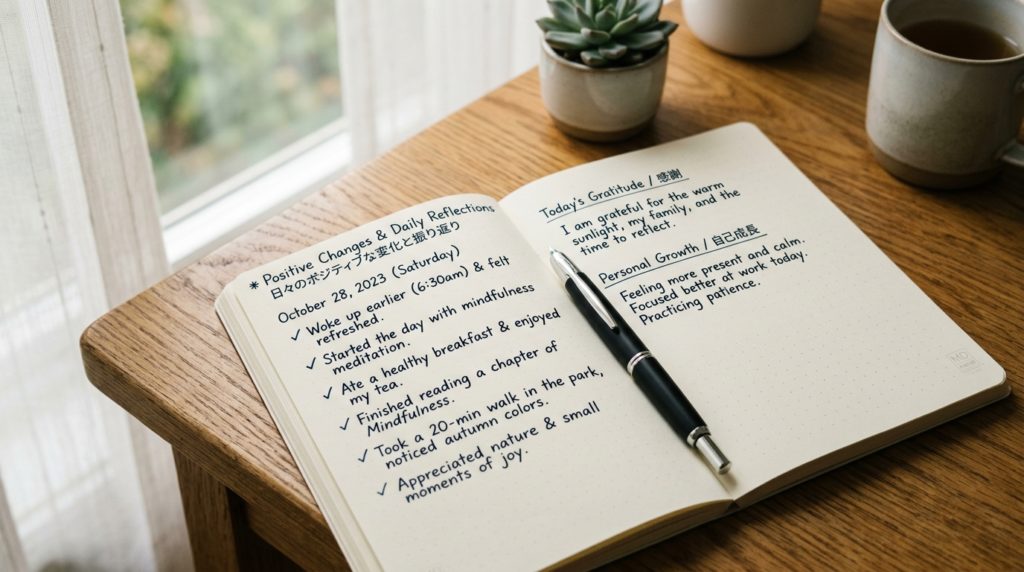 * Positive Changes & Daily Reflections
日々のポジティブな変化と振り返り
October 28, 2023 (Saturday)
✓ Woke up earlier (6:30am) & felt
refreshed.
✓ Started the day with mindfulness
meditation.
✓ Ate a healthy breakfast & enjoyed
my tea.
✓ Finished reading a chapter of
Mindfulness.
✓ Took a 20-min walk in the park,
noticed autumn colors.
✓ Appreciated nature & small
moments of joy.
Today's Gratitude / 感謝
I am grateful for the warm
sunlight, my family, and the
time to reflect.
Personal Growth / 自己成長
Feeling more present and calm.
Focused better at work today.
Practicing patience.
MD